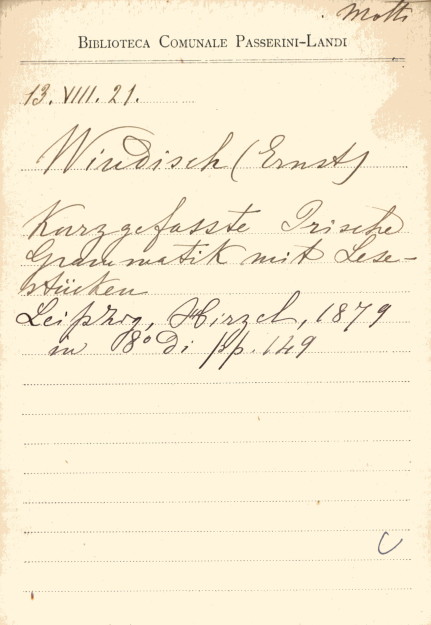 Motti
BIBLIOTECA COMUNALE PASSERINI-LANDI
13. VIII. 21.
Windisch (Ernst)
Kurzgefasste Irische
Grammatik mit Lese-
stücken
Leipzig, Hirzel, 1879
in 8º di pp. 149
C